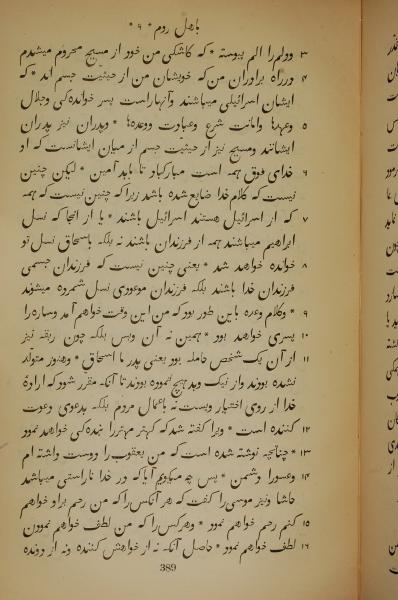 باهل روم * ٩ *
٣ ودلم را الم پیوسته * که کاشکی من خود از مسیح محروم میشدم
٤ در راه برادران من که خویشان من از حیثیت جسم اند * که
ایشان اسرائیلی میباشند وآنهاراست پسر خواندهکی وجلال
٥ وعهدها وامانت شرع وعبادت ووعده‌ها * وپدران نیز پدران
ایشانند ومسیح نیز از حیثیت جسم از میان ایشانست که او
٦ خدای فوق همه است مبارکباد تا بابد آمین * لیکن چنین
نیست که کلام خدا ضایع شده باشد زیرا که چنین نیست که همه
٧ که از اسرائیل هستند اسرائیل باشند * یا از آنجا که نسل
ابراهیم میباشند همه از فرزندان باشند نه بلکه باسحاق نسل تو
٨ خوانده خواهد شد * یعنی چنین نیست که فرزندان جسمی
فرزندان خدا باشند بلکه فرزندان موعودی نسل شمرده میشوند
٩ * وکلام وعده باین طور بود که من این وقت خواهم آمد وساره را
١٠ پسری خواهد بود * همین نه آن وبس بلکه چون ربقه نیز
١١ از آن یک شخص حامله بود یعنی پدر ما اسحاق * وهنوز متولد
نشده بودند واز نیک وبد هیچ ننموده بودند تا آنکه مقرر شود که ارادهٔ
خدا از روی اختیار وبست نه باعمال مردم بلکه بدعوی دعوت
١٢ کننده است * وبرا گفته شد که کهتر مهتر را بنده‌کی خواهد نمود
١٣ * چنانچه نوشته شده است که من یعقوب را دوست داشته ام
١٤ وعسو را دشمن * پس چه میگویم آیا که در خدا ناراستی میباشد
حاشا ونیز موسی را گفت که هر آنکس را که من رحم بر او خواهم
١٥ کنم رحم خواهم نمود * وهر کس را که من لطف خواهم نمودن
١٦ لطف خواهم نمود * حاصل آنکه نه از خواهش کننده ونه از دونده
389